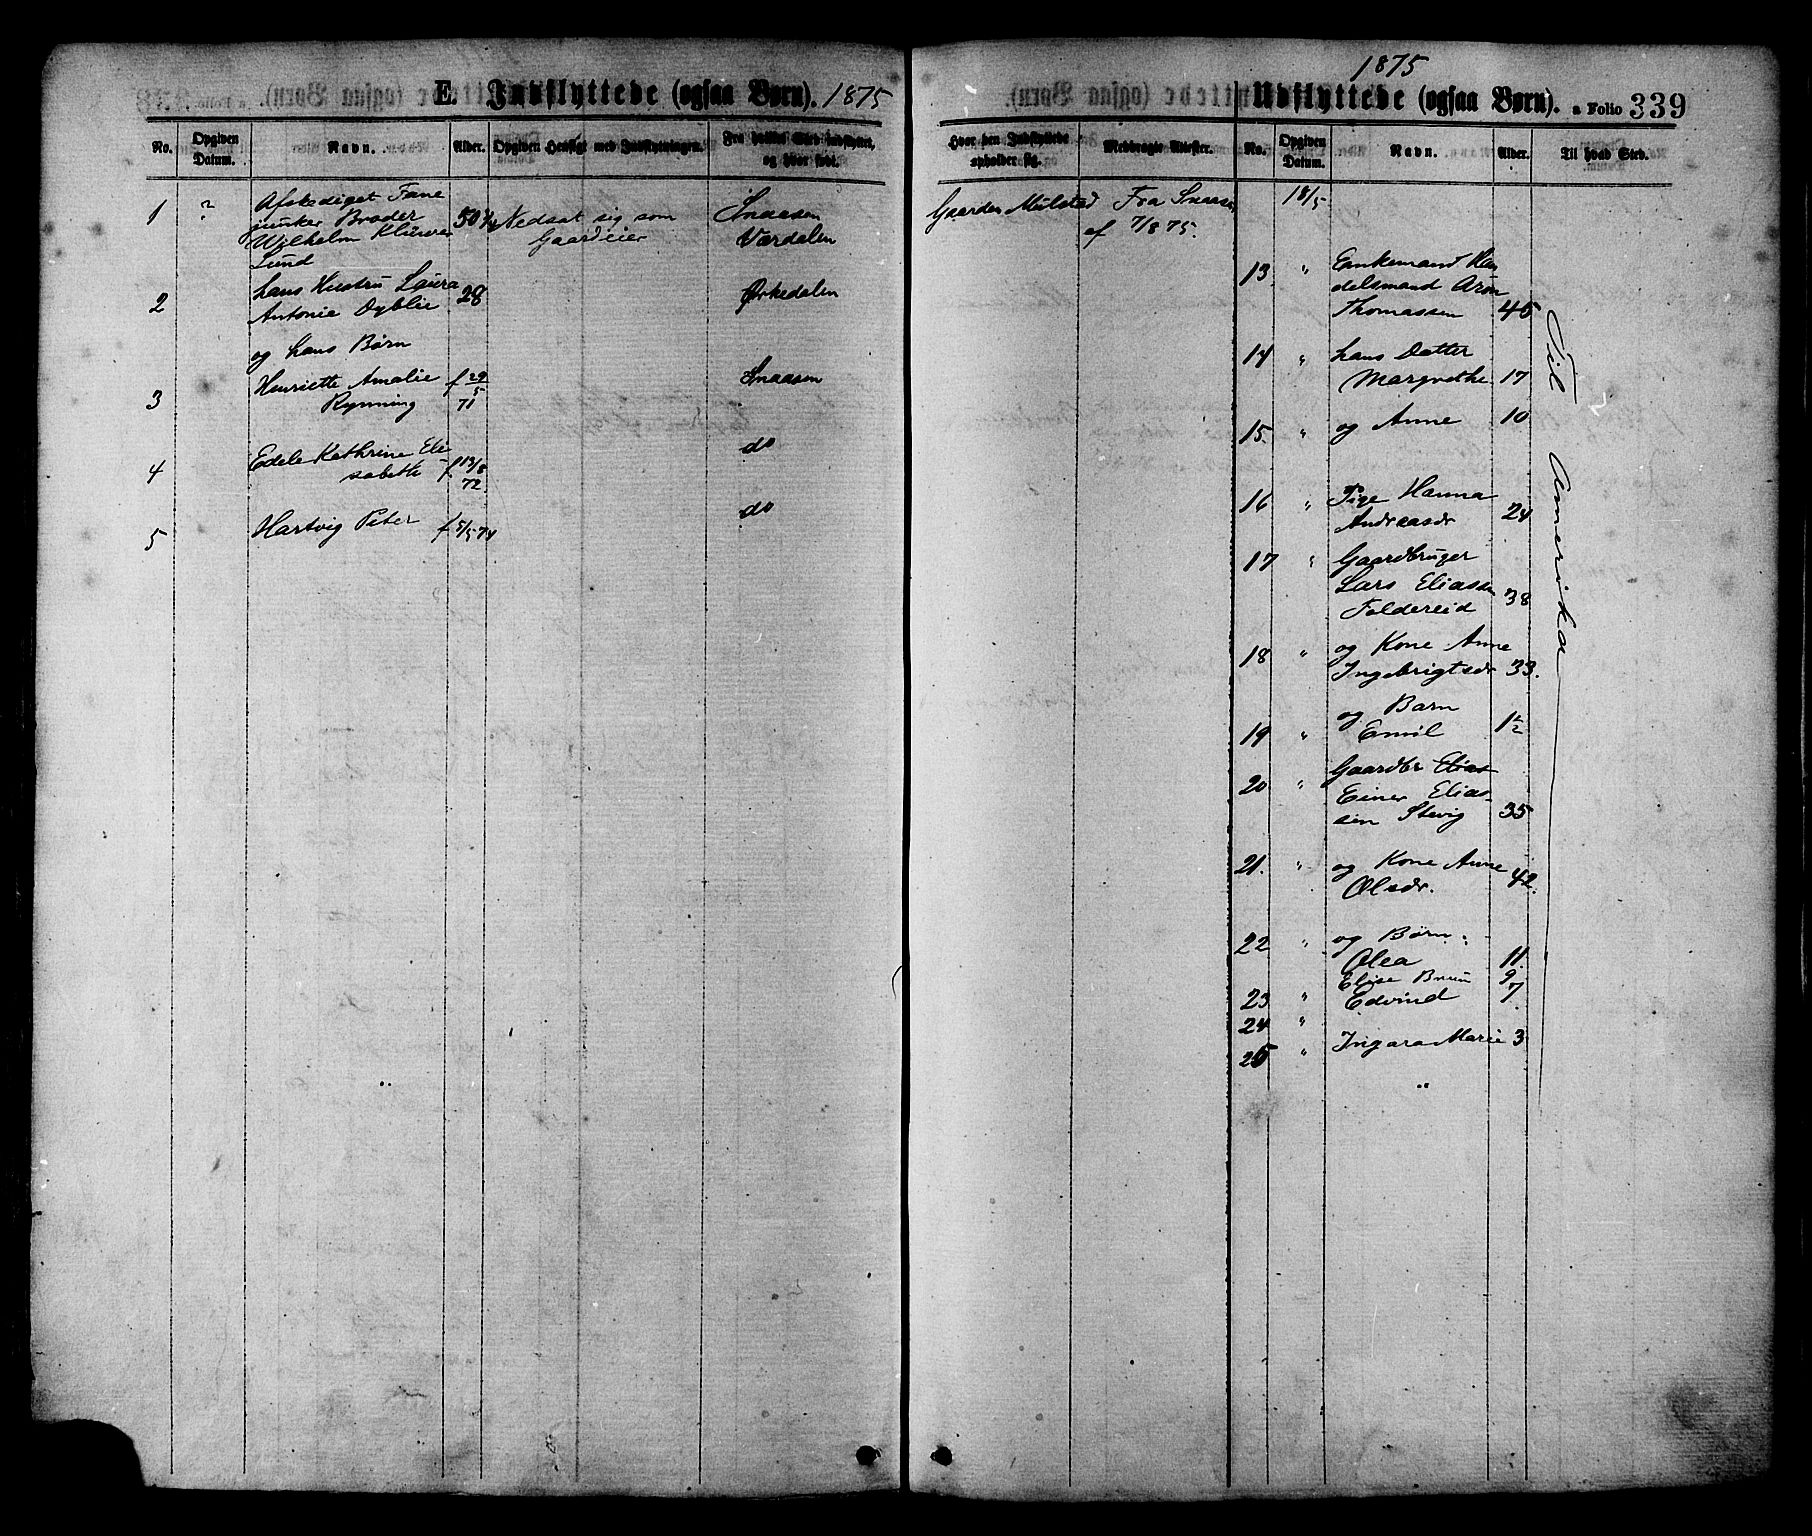 E. Indflyttede (ogsaa Børn). 1875
No.
Opgiven Datum.
Navn.
Alder.
Opgiven Hensigt med Indflytningen.
Fra hvilket Sted indflyttet, og hvor født.
1 ? Afskediget Fane
junker Broder
Wilhelm Klüwer
Lund
50 3/4 Nedsat sig som
Gaardeier
Snaasen
Værdalen
2 hans Hustru Laura
Antonie Dyblie 28 Ørkedalen
og hans Børn
3 Henriette Amalie
Rynning f 29/5 71 Snaasen
4 Edele Kathrine Eli
sabeth f. 13/8 72. do
5 Hartvig Peter f 5/5 74 do
1875
Udflyttede (ogsaa Børn). a Folio 339
Hvor den Indflyttede opholder sig.
Medbragte Attester.
No.
Opgiven Datum.
Navn.
Alder.
Til hvad Sted.
Gaarden Mulstad Fra Snaasen
af 7/8 75.
18/5
13 " Enkemand Han
delsmand Aron
Thomassen 45
14 " hans Datter
Margrethe 17
15. " og Anne 10
16 " Pige Hanna
Andreasdr 24
17 " Gaardbruger
Lars Eliassen
Foldereid 38
18 " og Kone Anne
Ingebrigtsdr 33.
19 " og Barn
Emil 1 1/2
20 " Gaardbr Elias
Einer Elias-
sen Stevig 35
21. " og Kone Anne
Olsdr. 42.
22 " og Børn:
Olea 11.
Elise Bruun 9
23 " Edvind 7.
24 "
25 " Ingara Marie 3
"
Til Amerika